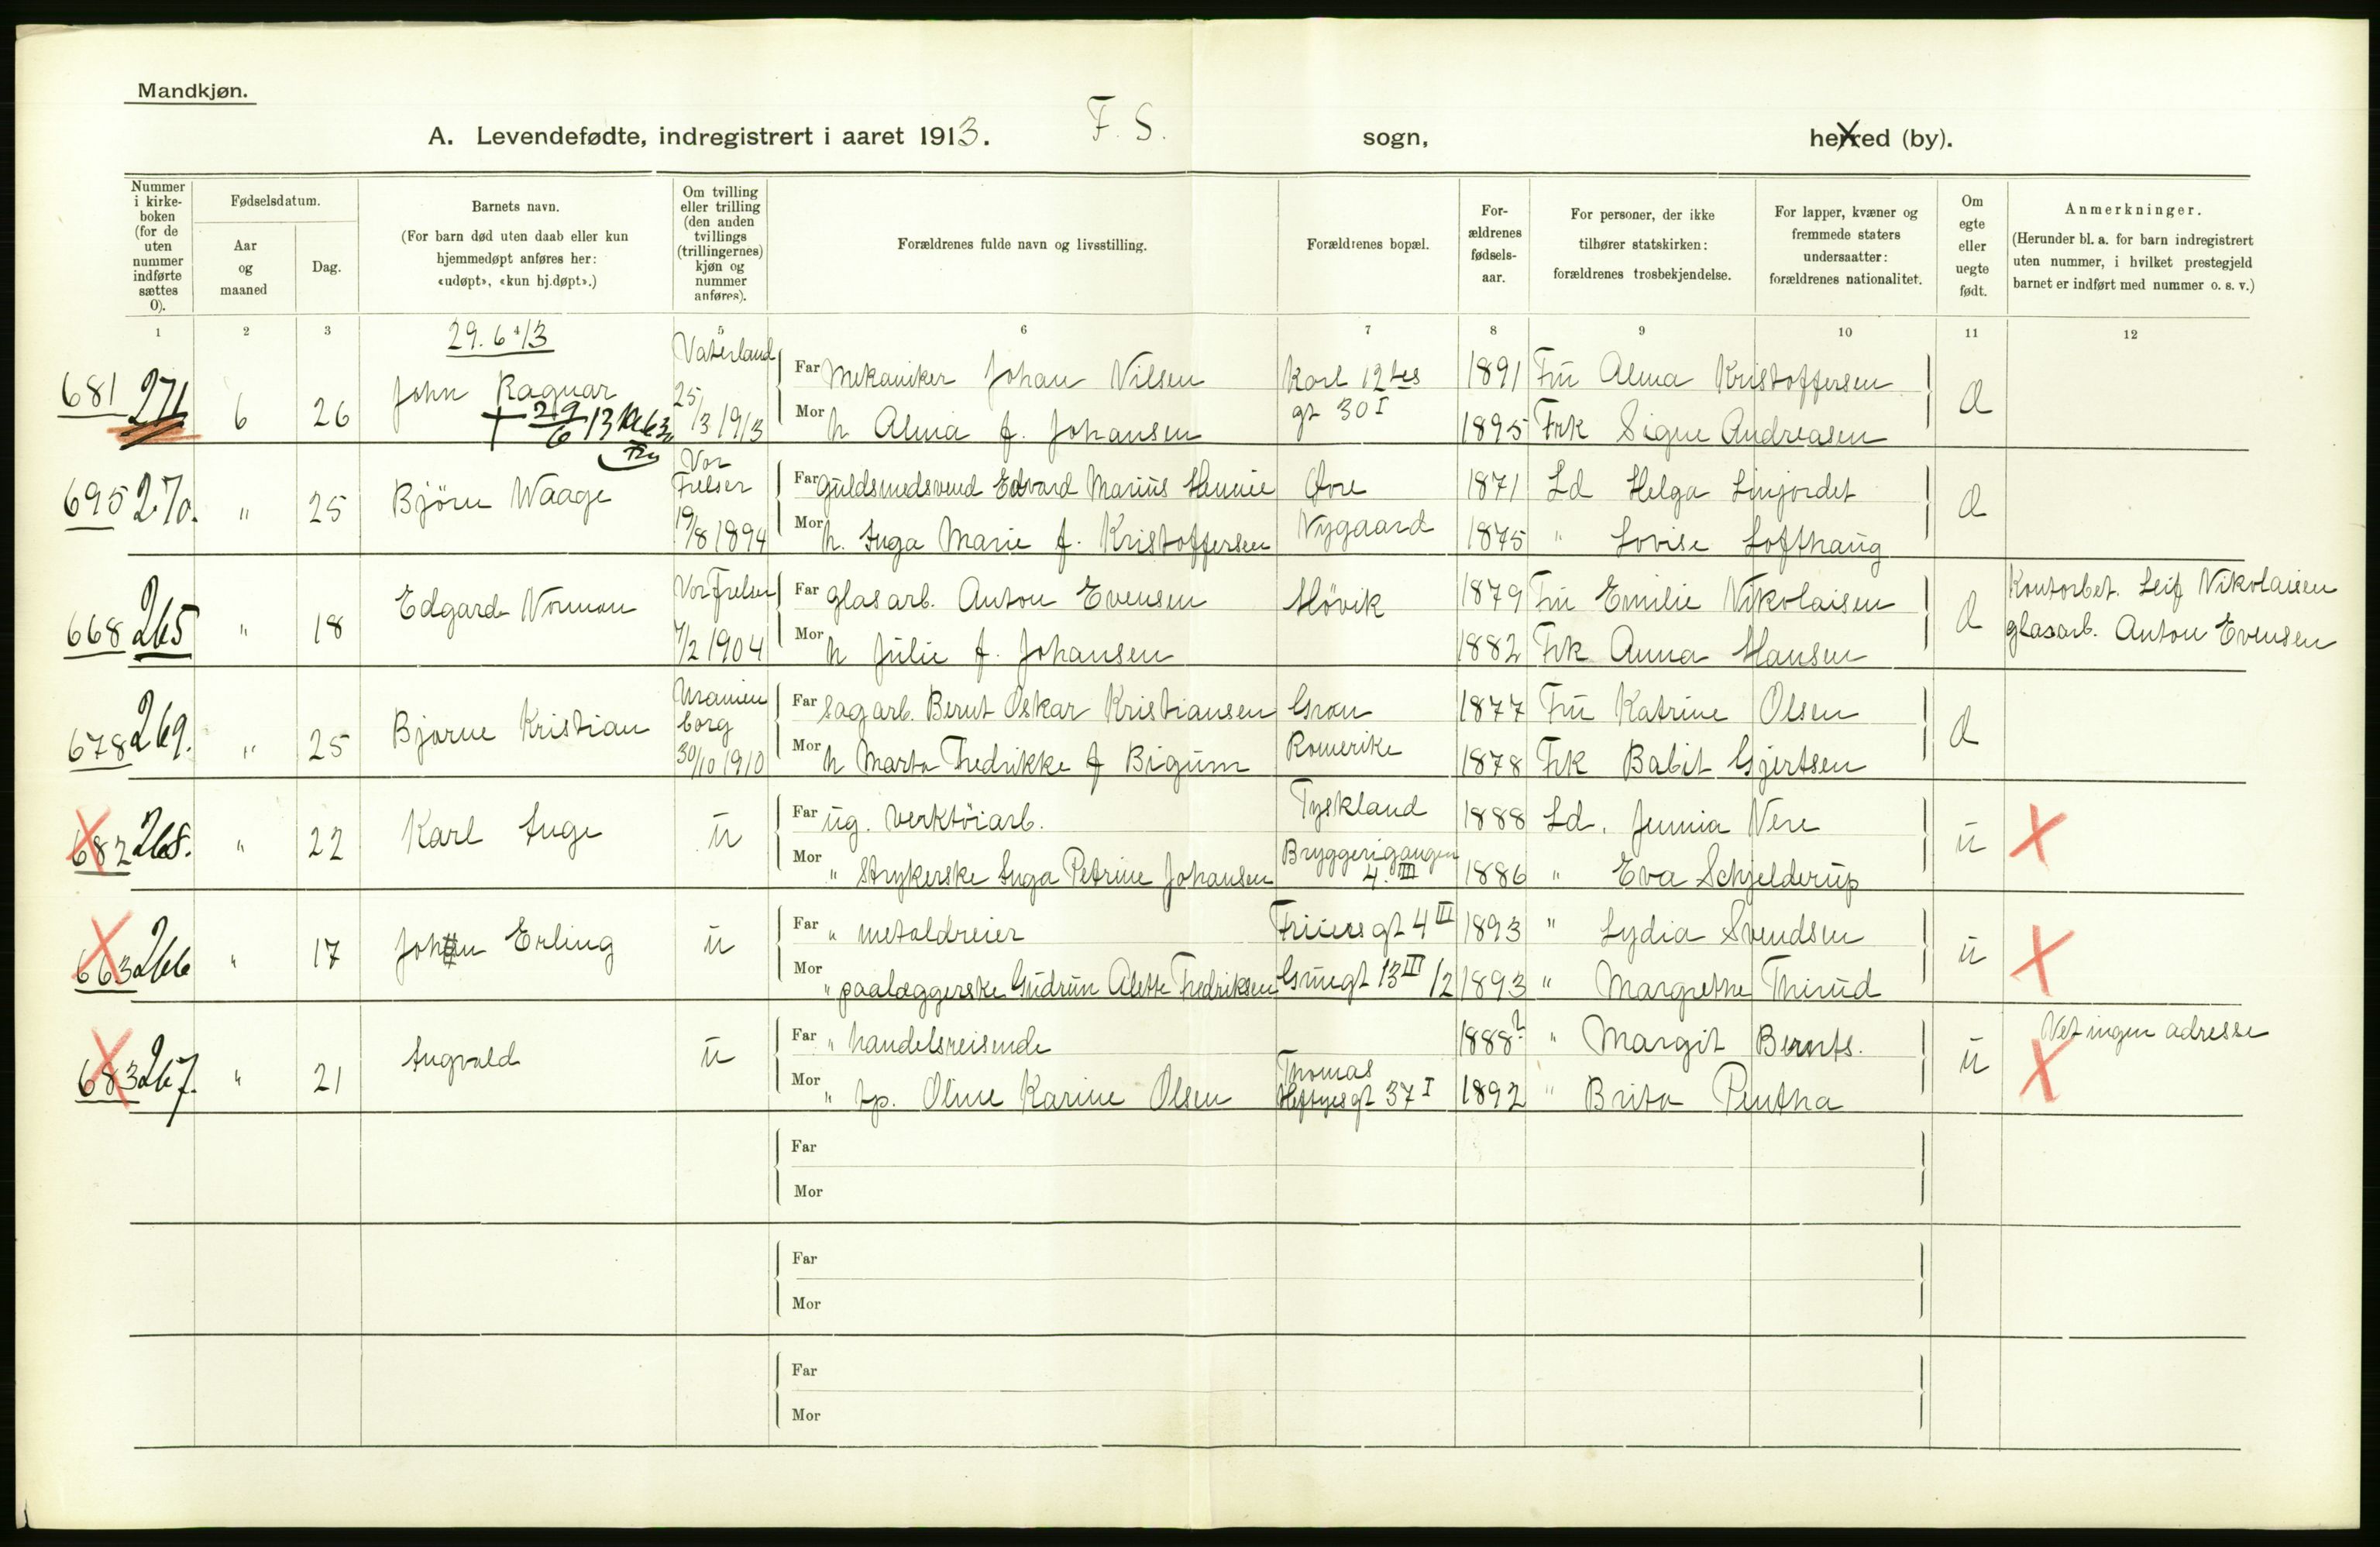 Mandkjøn.
A. Levendefødte, indregistrert i aaret 1913. F. S. sogn, herred (by).
Nummer i kirke-boken (for de uten nummer indførte sættes 0).
Fødselsdatum.
Aar og maaned
Dag.
Barnets navn.
(For barn død uten daab eller kun hjemmedøpt anføres her: «udøpt», «kun hj.døpt».)
Om tvilling eller trilling (den anden tvillings (trillingernes) kjøn og nummer anføres).
Forældrenes fulde navn og livsstilling.
Forældrenes bopæl.
For-ældrenes fødsels-aar.
For personer, der ikke tilhører statskirken: forældrenes trosbekjendelse.
For lapper, kvæner og fremmede staters undersaatter: forældrenes nationalitet.
Om egte eller uegte født.
Anmerkninger.
(Herunder bl. a. for barn indregistrert uten nummer, i hvilket prestegjeld barnet er indført med nummer o. s. v.)
1 2 3 4 5 6 7 8 9 10 11 12
29. 6 /13
681 271 6 26 John Ragnar Vaterland 25/3 1913 Far Mekaniker Johan Nilsen Karl 12tes 1891 Fru Alma Kristoffersen
† 29/6 13
Mor h Alma f. Johansen gt 30 I 1895 Frk Signe Andreasen
695 270. " 25 Bjørn Waage Vor Frelser 19/8 1894 Far Guldsmedsvend Edvard Marius Øvre 1871 Ld Helga
Mor h. Inga Marie f. Kristoffersen Nygaard 1875 " Lovise Lofthaug
668 265 " 18 Edgard Norman Vor Frelser 7/2 1904 Far glasarb. Anton Evensen Høvik 1879 Fru Emilie Nikolaisen Kontorbet. Leif Nikolaisen
Mor h Julie f. Johansen 1882 Frk Anna Hansen glasarb. Anton Evensen
678 269. " 25 Bjarne Kristian Uranienborg 30/10 1910 Far sagarb. Bernt Oskar Kristiansen Gran 1877 Fru Katrine Olsen
Mor h Marta Fredrikke f Bigum Romerike 1878 Frk Babit Gjertsen
682 268. " 22 Karl Inge u Far ug. verktøiarb. Tyskland 1888 Ld. u
Mor " strykerske Inga Petrine Johansen Bryggerigangen 4. III 1886 " Eva Schjelderup
663 266 " 17 Johan Erling u Far " metaldreier Friisesgt 4 III 1893 " Lydia Svendsen u
Mor " paalæggerske Gudrun Alette Fredriksen 13 III /2 1893 " Margrethe
683 267. " 21 Ingvald u Far " handelsreisende 1888? " Margit Bernts. u Vet ingen adresse
Mor " tp. Oline Karine Olsen Thomas Heftyesgt 37 I 1892 " Brita
Far
Mor
Far
Mor
Far
Mor